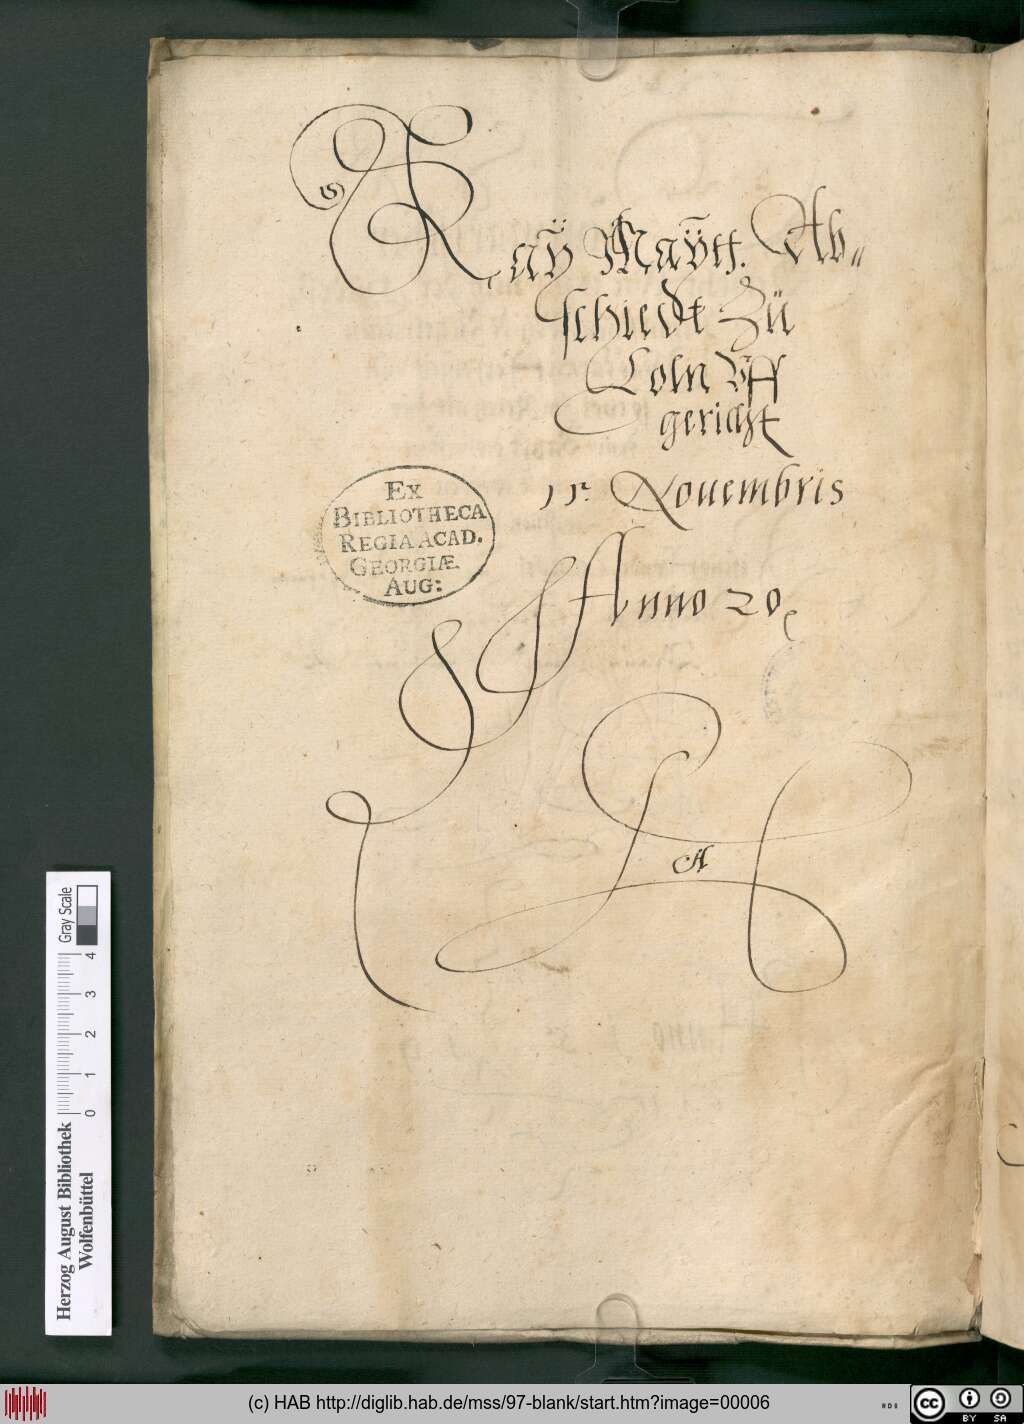 Kaÿ Maÿtt. Ab„
schiedt Zü
Coln vff
gericht
15. Nouembris
Anno 20
Ex
BIBLIOTHECA
REGIA ACAD.
GEORGIÆ
AUG:
Herzog August Bibliothek
Wolfenbüttel
0 1 2 3 4
Gray Scale
(c) HAB http://diglib.hab.de/mss/97-blank/start.htm?image=00006
cc BY SA